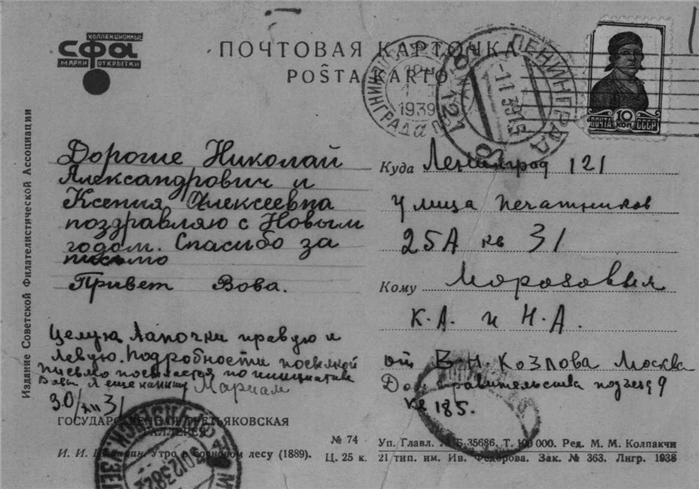 КОЛЛЕКЦИОННЫЕ
СФА
МАРКИ ОТКРЫТКИ
ПОЧТОВАЯ КАРТОЧКА
POŜTA KARTO
ЛЕНИНГРАД
1939
ЛЕНИНГРАД
ПОЧТА 10 КОП СССР
Издание Советской Филателистической Ассоциации
Дорогие Николай
Александрович и
Ксения Алексеевна
поздравляю с Новым
годом. Спасибо за
письмо
Привет Вова.
Целую Лапочки правую и
левую. Подробности
письмо по инициативе
Я еще напишу Мариам
30/XII 31
Куда Ленинград 121
Улица Печатников
25А кв 31
Кому Морозовым
К.А. и Н.А.
от В.Н. Козлова Москва
Дом правительства подъезд 9
кв 185.
ГОСУДАРСТВЕННАЯ ТРЕТЬЯКОВСКАЯ
ГАЛЛЕРЕЯ
И. И. Утро в сосновом лесу (1889).
№ 74
Ц. 25 к.
Уп. Главл. № Б.35686. Т. 000. Ред. М. М. Колпакчи
21 тип. им. Ив. Федорова. Зак. № 363. Лнгр. 1938